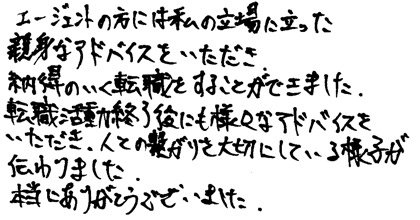 エージェントの方には私の立場に立った
親身なアドバイスをいただき、
納得のいく転職をすることができました.
転職活動終了後にも様々なアドバイスを
いただき、人との繋がりを大切にしている様子が
伝わりました.
本当にありがとうございました.